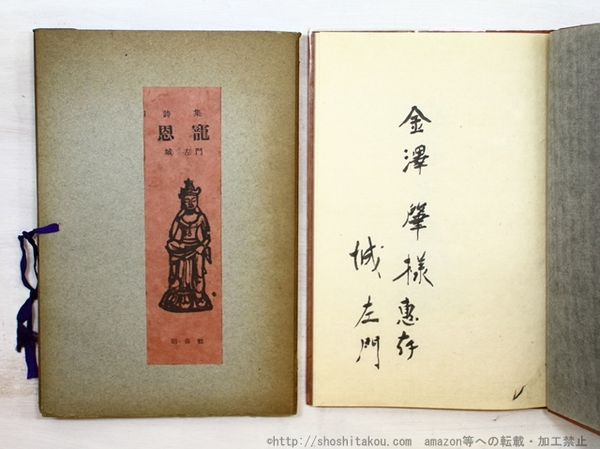 詩集
恩寵
城左門
昭森社
金澤肇様惠存
城左門
©http://shoshitakou.com amazon等への転載・加工禁止